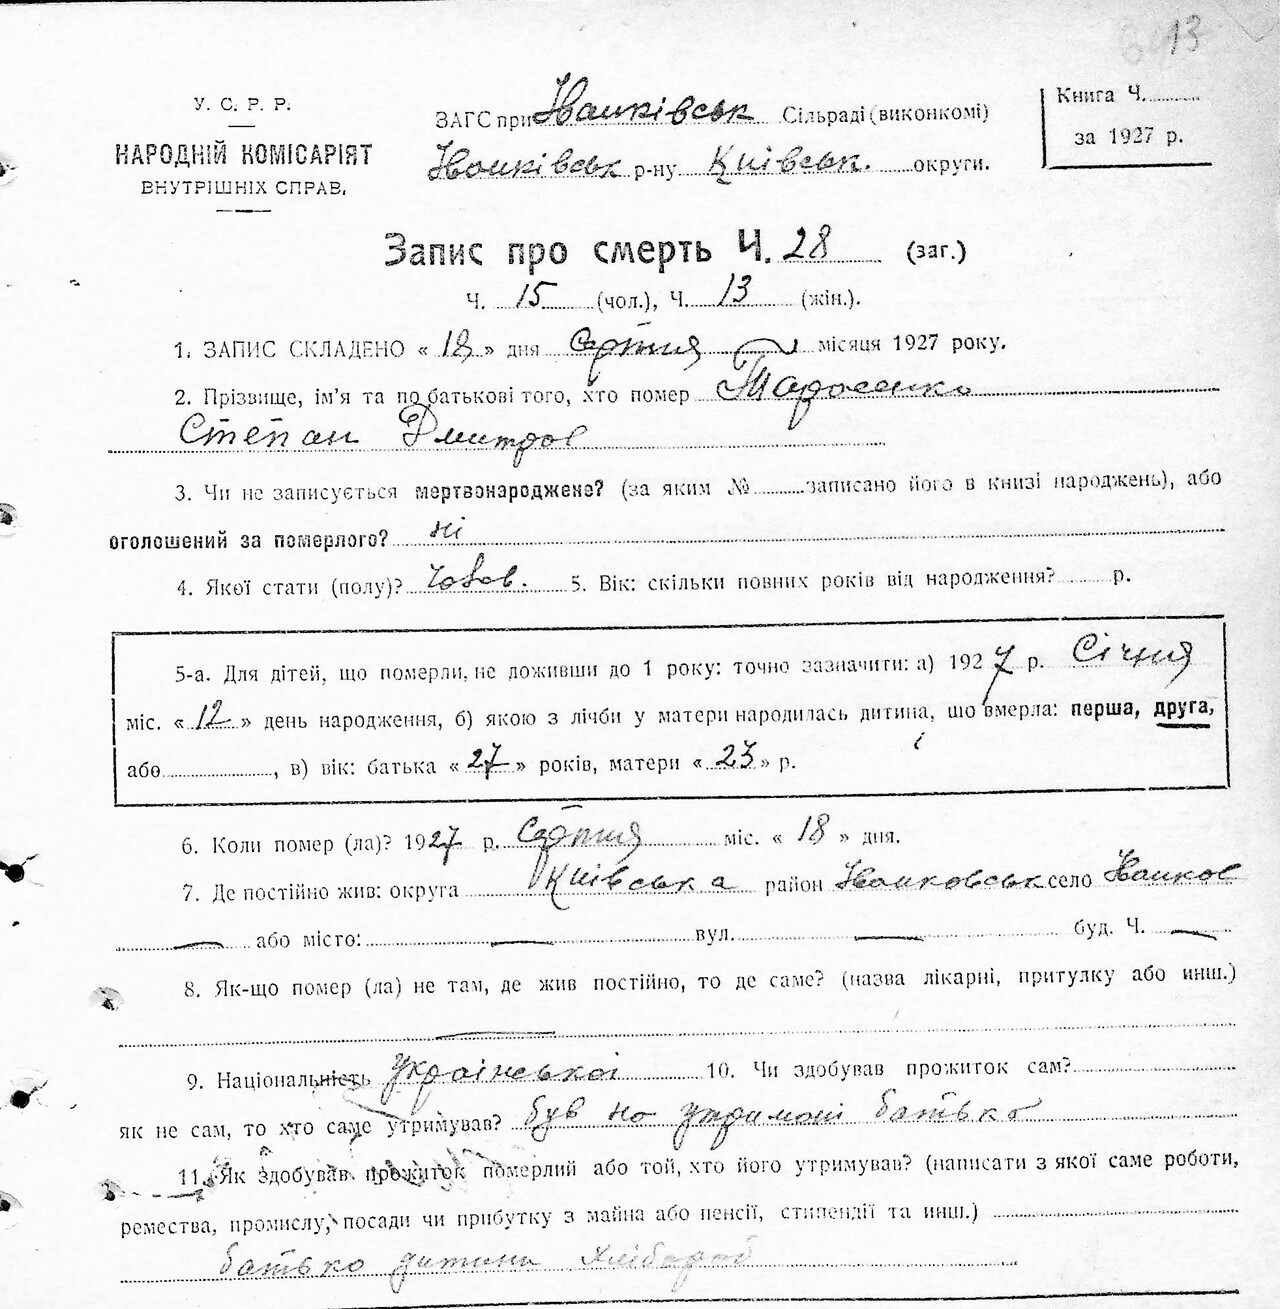 13
У. С. Р. Р.
НАРОДНІЙ КОМІСАРІЯТ
ВНУТРІШНІХ СПРАВ.
ЗАГС при Іванківськ Сільраді (виконкомі)
Іванківськ р-ну Київськ. округи.
Книга Ч.
за 1927 р.
Запис про смерть Ч. 28 (заг.)
Ч. 15 (чол.), Ч. 13 (жін.).
1. ЗАПИС СКЛАДЕНО « 18 » дня Серпня місяця 1927 року.
2. Прізвище, ім'я та по батькові того, хто помер Тарасенко
Степан Дмитров
3. Чи не записується мертвонароджене? (за яким № записано його в книзі народжень), або
оголошений за померлого? ні
4. Якої стати (полу)? чолов. 5. Вік: скільки повних років від народження? р.
5-а. Для дітей, що померли, не доживши до 1 року: точно зазначити: а) 1927 р. Січня
міс. « 12 » день народження, б) якою з лічби у матери народилась дитина, що вмерла: перша, друга,
або , в) вік: батька « 27 » років, матери « 23 » р.
6. Коли помер (ла)? 1927 р. Серпня міс. « 18 » дня.
7. Де постійно жив: округа Київська район Іванковськ село Іванков
або місто: вул. буд. Ч.
8. Як-що помер (ла) не там, де жив постійно, то де саме? (назва лікарні, притулку або инш.)
9. Національність Української 10. Чи здобував прожиток сам?
як не сам, то хто саме утримував? був на утримані батька
11. Як здобував прожиток померлий або той, хто його утримував? (написати з якої саме роботи,
ремества, промислу, посади чи прибутку з майна або пенсії, стипендії та инш.)
батько дитини хлібороб